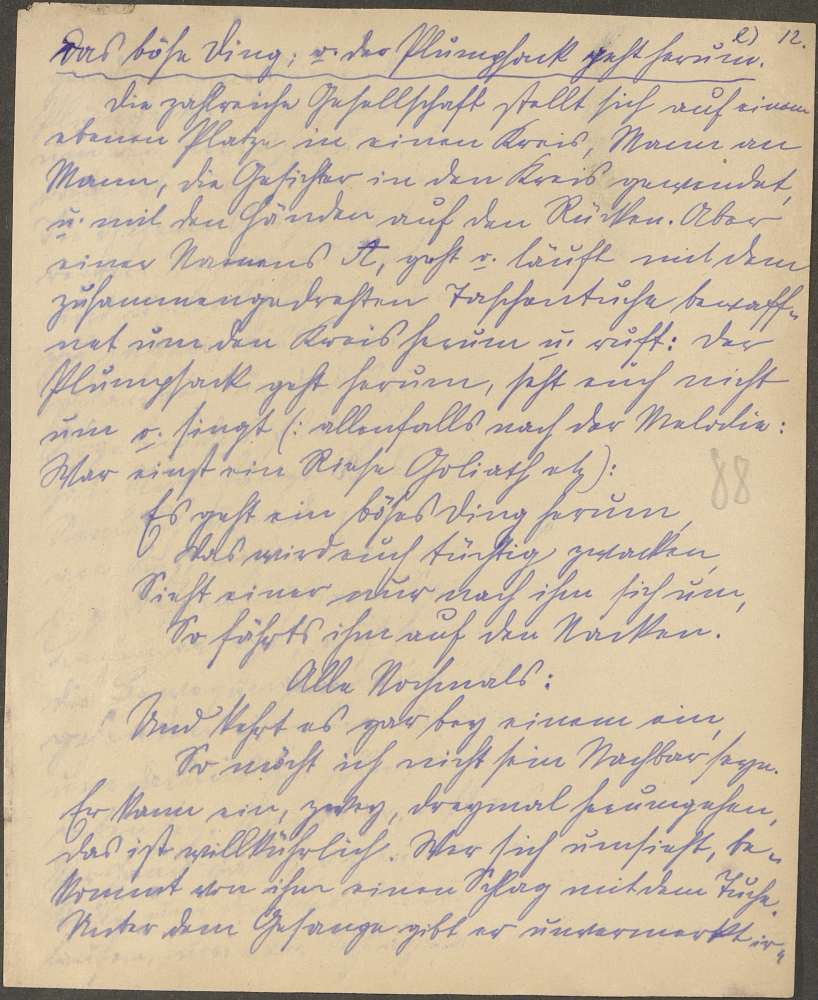 l) 12.
Das böse Ding; o. der Plumpsack geht herum.
Die zahlreiche Gesellschaft stellt sich auf einem
ebenen Platze in einen Kreis, Mann an
Mann, die Gesichter in den Kreis gewendet,
u. mit den Händen auf den Rücken. Aber
einer Namens A, geht o. läuft mit dem
zusammengedrehten Taschentuche bewaff-
net um den Kreis herum u. ruft: Der
Plumpsack geht herum, seht euch nicht
um o. singt (: allenfalls nach der Melodie:
War einst ein Riese Goliath etz):
88
Es geht ein böses Ding herum,
Das wird euch tüchtig zwacken,
Sieht einer nur nach ihm sich um,
So fährts ihm auf den Nacken.
Alle Nochmals:
Und kehrt es gar bey einem ein,
So möcht ich nicht sein Nachbar seyn.
Er kann ein, zwey, dreymal herumgehen,
das ist willkührlich. Wer sich umsieht, be-
kommt von ihm einen Schlag mit dem Tuche.
Unter dem Gesange gibt er unvermerkt ir-